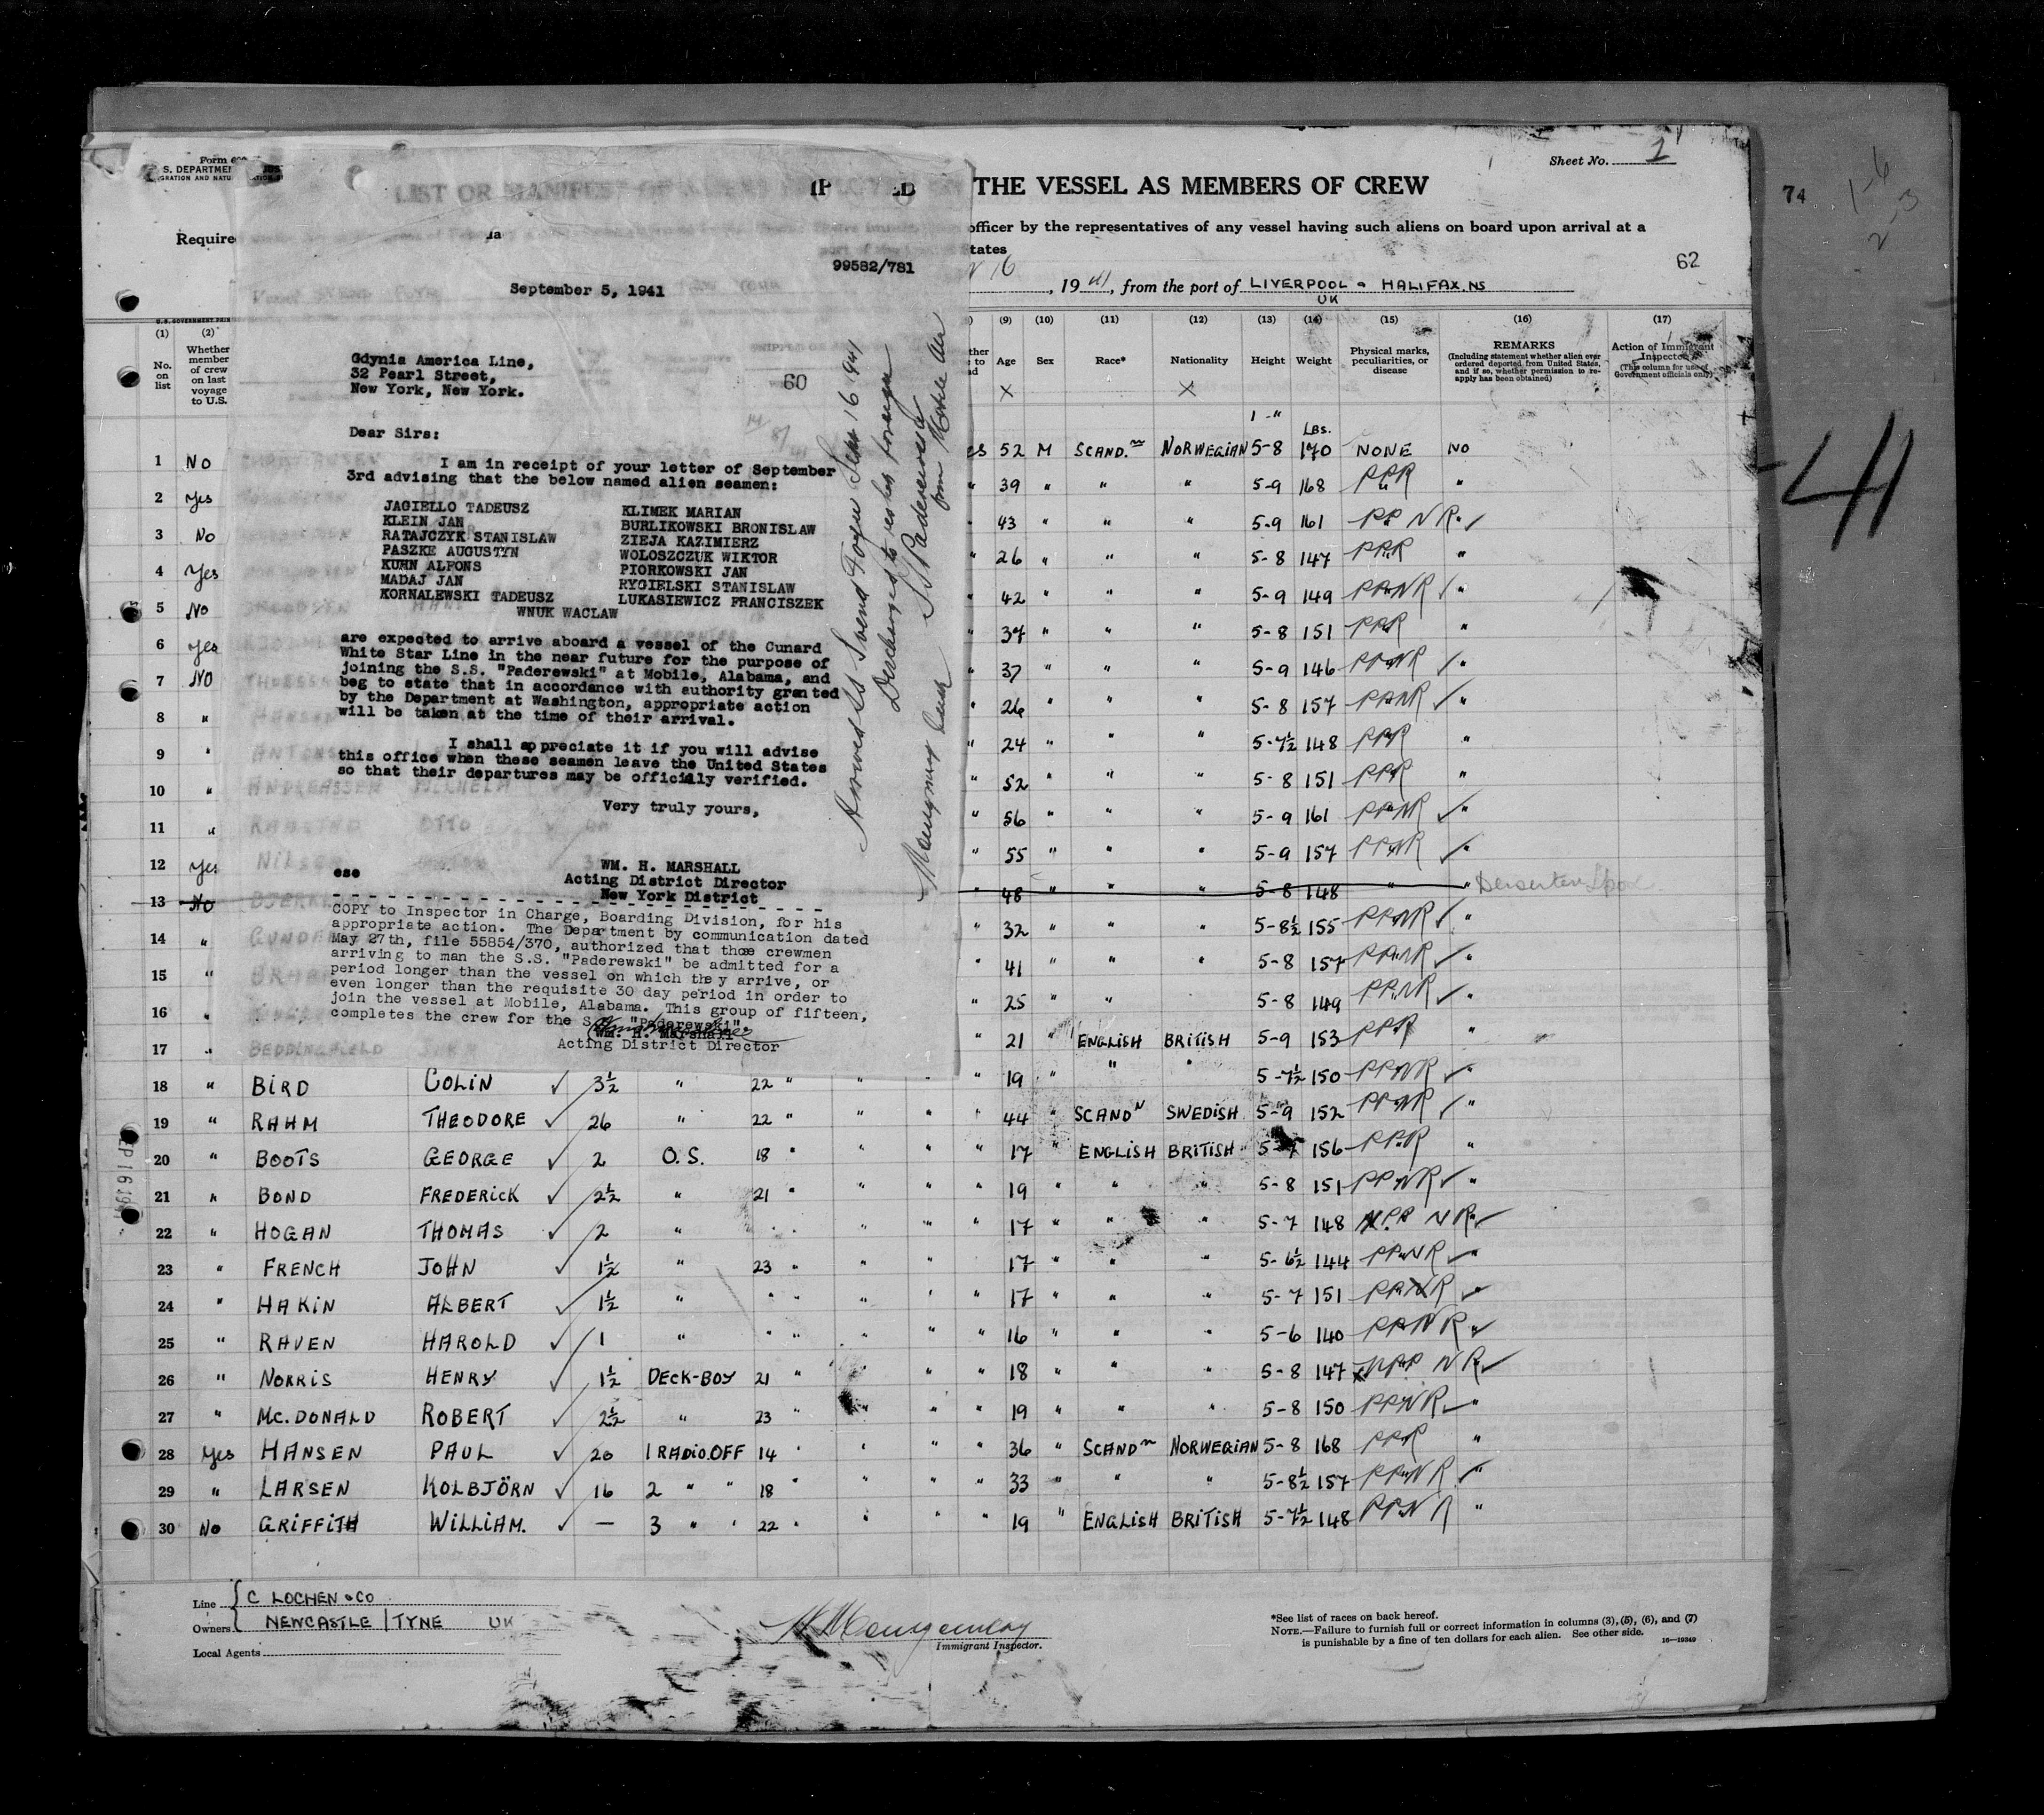 Sheet No. 1
THE VESSEL AS MEMBERS OF CREW
74
officer by the representatives of any vessel having such aliens on board upon arrival at a
Required
tates
62
16, 1941, from the port of LIVERPOOL & HALIFAX. NS
UK
99582/781
September 5, 1941
60
Gdynia America Line,
32 Pearl Street,
New York, New York.
Dear Sirs:
I am in receipt of your letter of September
3rd advising that the below named alien seamen:
JAGIELLO TADEUSZ KLIMEK MARIAN
KLEIN JAN BURLIKOWSKI BRONISLAW
RATAJCZYK STANISLAW ZIEJA KAZIMIERZ
PASZKE AUGUSTYN WOLOSZCZUK WIKTOR
KUHN ALFONS PIORKOWSKI JAN
MADAJ JAN RYGIELSKI STANISLAW
KORNALEWSKI TADEUSZ LUKASIEWICZ FRANCISZEK
WNUK WACLAW
are expected to arrive aboard a vessel of the Cunard
White Star Line in the near future for the purpose of
joining the S.S. "Paderewski" at Mobile, Alabama, and
beg to state that in accordance with authority granted
by the Department at Washington, appropriate action
will be taken at the time of their arrival.
I shall appreciate it if you will advise
this office when these seamen leave the United States
so that their departures may be officially verified.
Very truly yours,
WM. H. MARSHALL
ese
Acting District Director
New York District
COPY to Inspector in Charge, Boarding Division, for his
appropriate action. The Department by communication dated
May 27th, file 55854/370, authorized that those crewmen
arriving to man the S.S. "Paderewski" be admitted for a
period longer than the vessel on which they arrive, or
even longer than the requisite 30 day period in order to
join the vessel at Mobile, Alabama. This group of fifteen,
completes the crew for the S.S. "Paderewski".
Wm. H. Marshall
Acting District Director
41
(1) (2) (9) (10) (11) (12) (13) (14) (15) (16) (17)
No. on list
Whether member of crew on last voyage to U.S.
Age Sex Race* Nationality Height Weight
Physical marks, peculiarities, or disease
REMARKS
(Including statement whether alien ever ordered deported from United States, and if so, whether permission to re-apply has been obtained)
Action of Immigrant Inspector
(This column for use of Government officials only)
LBS.
1 NO 52 M SCAND. NORWEGIAN 5-8 170 NONE NO
2 Yes " 39 " " " 5-9 168 PPR "
3 No " 43 " " " 5-9 161 PP NR "
4 Yes " 26 " " " 5-8 147 PPR "
5 NO " 42 " " " 5-9 149 PPNR "
6 Yes " 37 " " " 5-8 151 PPR "
7 NO " 37 " " " 5-9 146 PPNR "
8 " " 26 " " " 5-8 157 PPNR "
9 " " 24 " " " 5-7½ 148 PPR "
10 " " 52 " " " 5-8 151 PPR "
11 " " 56 " " " 5-9 161 PPNR "
12 Yes " 55 " " " 5-9 157 PPNR "
13 No " 48 " " " 5-8 148 " "
14 " " 32 " " " 5-8½ 155 PPNR "
15 " " 41 " " " 5-8 157 PPNR "
16 " " 25 " " 5-8 149 PPNR "
17 " BEDDINGFIELD " 21 " ENGLISH BRITISH 5-9 153 PPR "
18 " BIRD COLIN 3½ " 22 " " " " 19 " " " 5-7½ 150 PPNR "
19 " RAHM THEODORE 26 " 22 " " " " 44 " SCANDN SWEDISH 5-9 152 PPNR "
20 " BOOTS GEORGE 2 O.S. 18 " " " " 17 " ENGLISH BRITISH 5-7 156 PPR "
21 " BOND FREDERICK 2½ " 21 " " " " 19 " " " 5-8 151 PPNR "
22 " HOGAN THOMAS 2 " " " " " " 17 " " " 5-7 148 NR "
23 " FRENCH JOHN 1½ " 23 " " " " 17 " " " 5-6½ 144 PPNR "
24 " HAKIN ALBERT 1½ " " " " " " 17 " " " 5-7 151 PPNR "
25 " RAVEN HAROLD 1 " " " " " " 16 " " " 5-6 140 PPNR "
26 " NORRIS HENRY 1½ DECK-BOY 21 " " " " 18 " " " 5-8 147 NR "
27 " MC.DONALD ROBERT 2½ " 23 " " " " 19 " " " 5-8 150 PPNR "
28 Yes HANSEN PAUL 20 1 RADIO.OFF 14 " " " " 36 " SCANDN NORWEGIAN 5-8 168 PPR "
29 " LARSEN KOLBJÖRN 16 2 " " 18 " " " " 33 " " " 5-8½ 157 PPNR "
30 No GRIFFITH WILLIAM. — 3 " " 22 " " " " 19 " ENGLISH BRITISH 5-7½ 148 PPNR "
Line C LOCHEN & CO
Owners NEWCASTLE / TYNE UK
Local Agents
Immigrant Inspector.
*See list of races on back hereof.
NOTE.—Failure to furnish full or correct information in columns (3), (5), (6), and (7)
is punishable by a fine of ten dollars for each alien. See other side.
16—19349